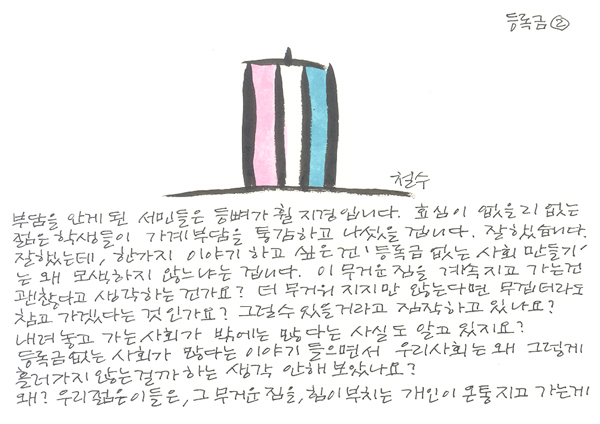 등록금 ②
철수
부담을 안게 된 서민들은 등뼈가 휠 지경입니다. 효심이 없을리 없는
젊은 학생들이 가계부담을 통감하고 나섰을 겁니다. 잘했습니다.
잘했는데, 한가지 이야기 하고 싶은 건 '등록금 없는 사회 만들기'
는 왜 모색하지 않느냐는 겁니다. 이 무거운 짐을 계속지고 가는건
괜찮다고 생각하는 건가요? 더 무거워 지지만 않는다면 무겁더라도
참고 가겠다는 것인가요? 그럴수 있을거라고 짐작하고 있나요?
내려놓고 가는사회가 밖에는 많다는 사실도 알고 있지요?
등록금없는 사회가 많다는 이야기 들으면서 우리사회는 왜 그렇게
흘러가지 않는걸까 하는 생각 안해 보았나요?
왜? 우리젊은이들은, 그 무거운 짐을, 힘이부치는 개인이 온통지고 가는게